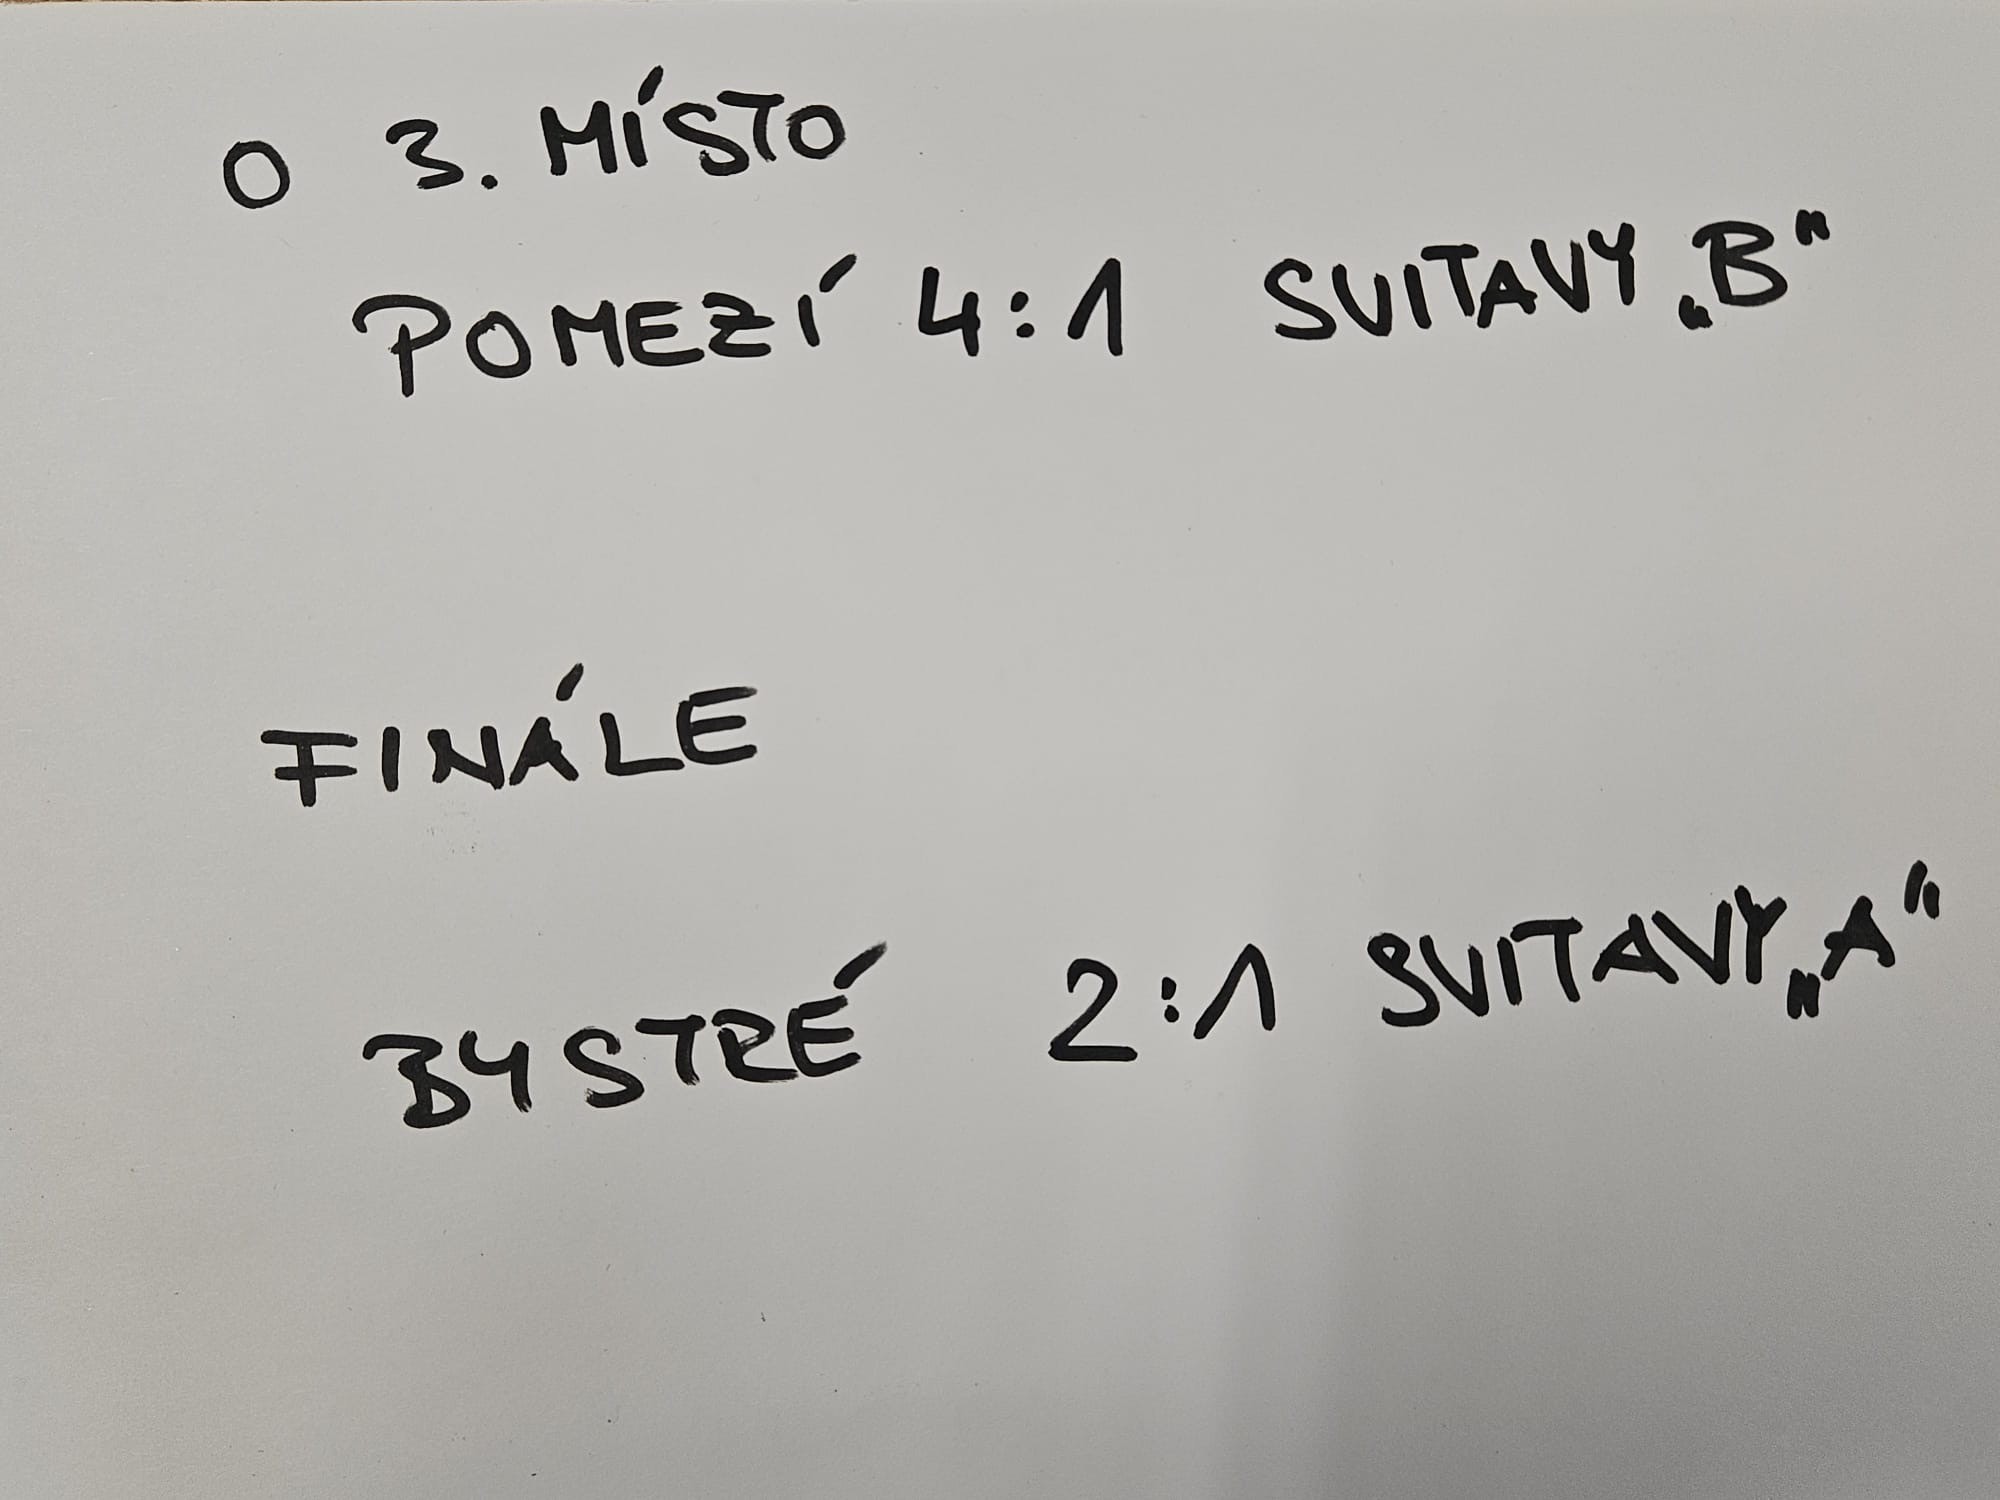 O 3. MÍSTO
POMEZÍ 4:1 SVITAVY „B“
FINÁLE
BYSTRÉ 2:1 SVITAVY „A“